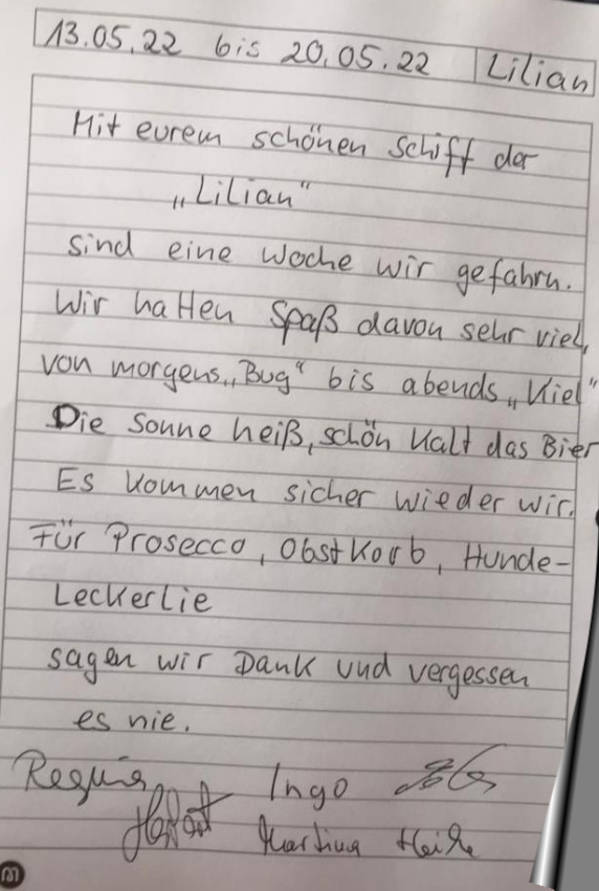 13.05.22 bis 20.05.22 Lilian
Mit eurem schönen Schiff der
„Lilian“
sind eine Woche wir gefahrn.
Wir hatten Spaß davon sehr viel,
von morgens „Bug“ bis abends „Kiel“
Die Sonne heiß, schön kalt das Bier
Es kommen sicher wieder wir.
Für Prosecco, Obstkorb, Hunde-
Leckerlie
sagen wir Dank und vergessen
es nie.
Regina Ingo
Martina Heike